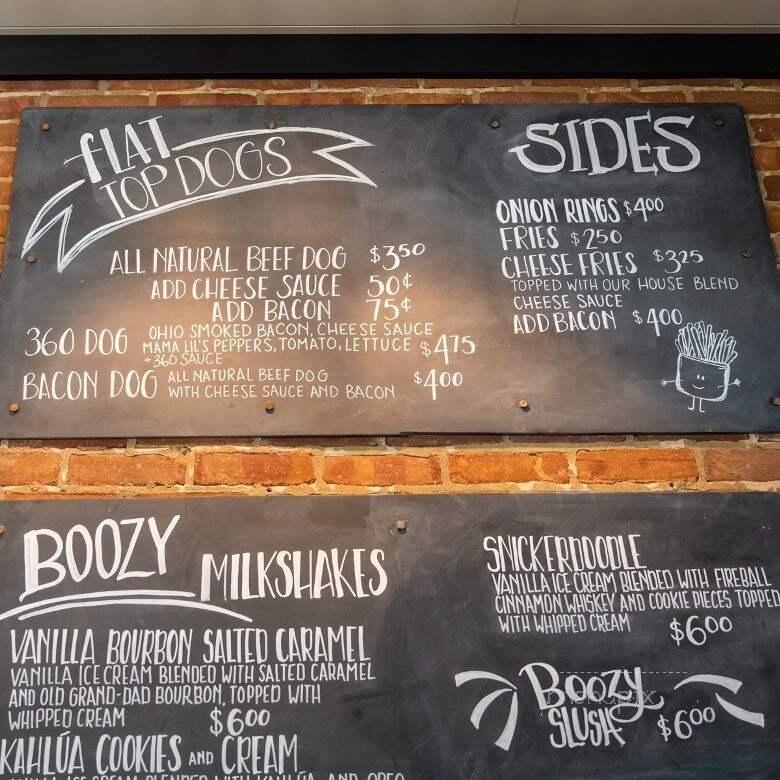 FLAT
TOP DOGS
ALL NATURAL BEEF DOG $3.50
ADD CHEESE SAUCE 50¢
ADD BACON 75¢
360 DOG OHIO SMOKED BACON, CHEESE SAUCE
MAMA LIL'S PEPPERS, TOMATO, LETTUCE $4.75
+360 SAUCE
BACON DOG ALL NATURAL BEEF DOG $4.00
WITH CHEESE SAUCE AND BACON
SIDES
ONION RINGS $4.00
FRIES $2.50
CHEESE FRIES $3.25
TOPPED WITH OUR HOUSE BLEND
CHEESE SAUCE
ADD BACON $4.00
BOOZY MILKSHAKES
VANILLA BOURBON SALTED CARAMEL
VANILLA ICE CREAM BLENDED WITH SALTED CARAMEL
AND OLD GRAND-DAD BOURBON, TOPPED WITH
WHIPPED CREAM $6.00
KAHLÚA COOKIES AND CREAM
VANILLA ICE CREAM BLENDED WITH KAHLÚA, AND OREO
SNICKERDOODLE
VANILLA ICE CREAM BLENDED WITH FIREBALL
CINNAMON WHISKEY AND COOKIE PIECES TOPPED
WITH WHIPPED CREAM $6.00
BOOZY
SLUSH $6.00